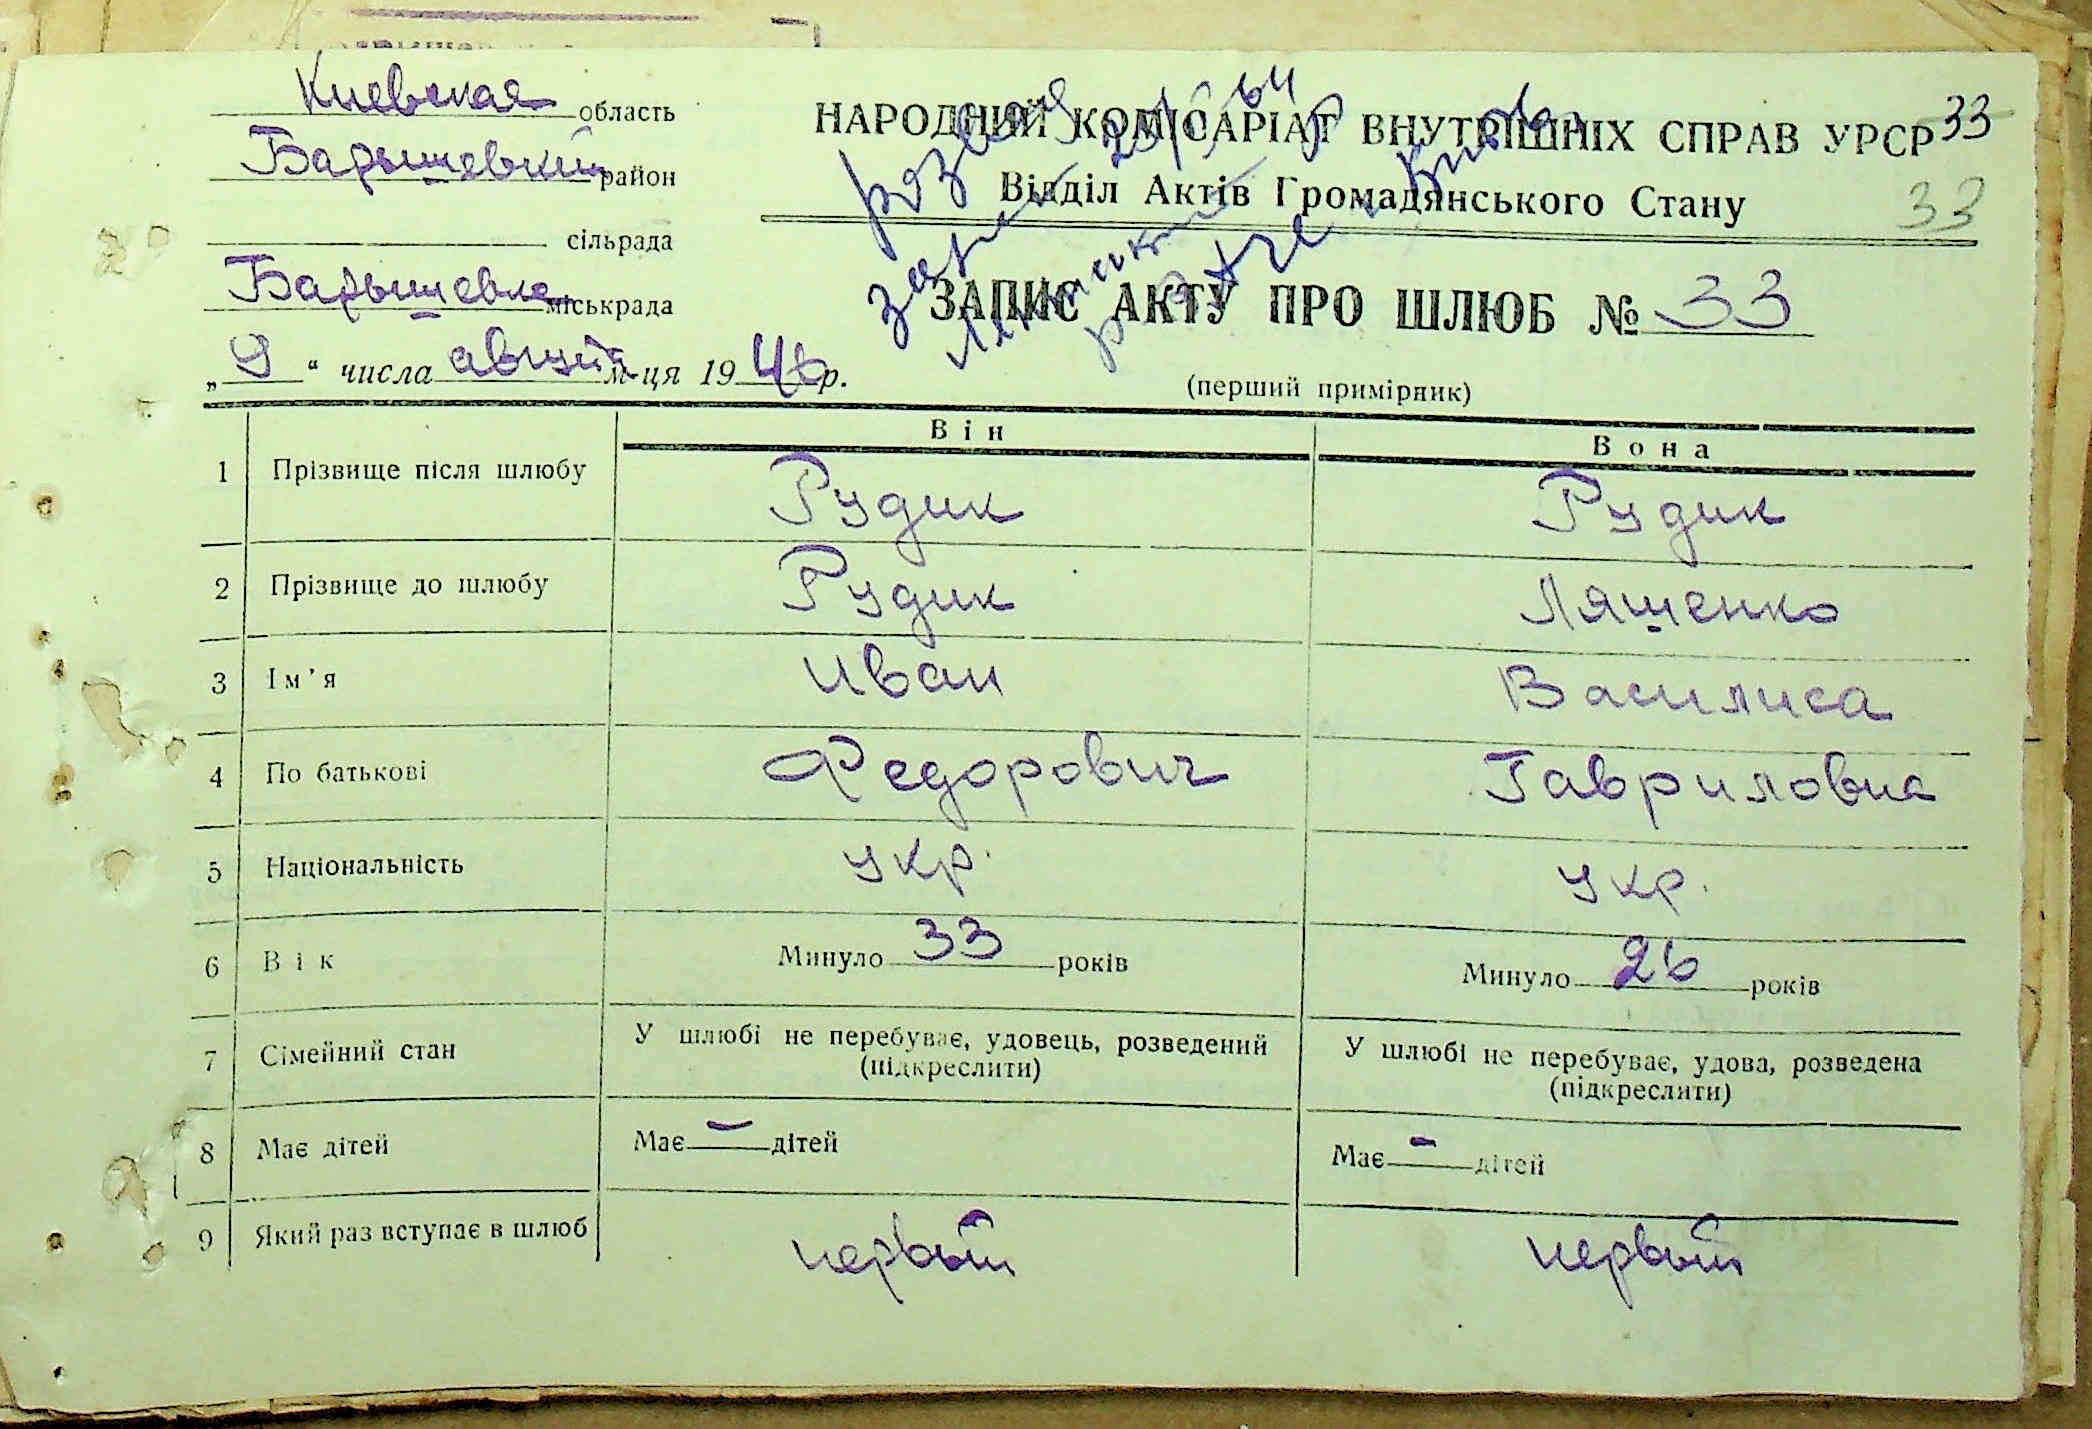 Киевская область
Барышевский район
сільрада
Барышевка міськрада
„9“ числа август м-ця 1946 р.
НАРОДНИЙ КОМІСАРІАТ ВНУТРІШНІХ СПРАВ УРСР 33
Відділ Актів Громадянського Стану 33
ЗАПИС АКТУ ПРО ШЛЮБ № 33
(перший примірник)
Він Вона
1 Прізвище після шлюбу Рудик Рудик
2 Прізвище до шлюбу Рудик Ляшенко
3 Ім'я Иван Василиса
4 По батькові Федорович Гавриловна
5 Національність укр. укр.
6 Вік Минуло 33 років Минуло 26 років
7 Сімейний стан У шлюбі не перебуває, удовець, розведений У шлюбі не перебуває, удова, розведена
(підкреслити) (підкреслити)
8 Має дітей Має – дітей Має – дітей
9 Який раз вступає в шлюб первый первый